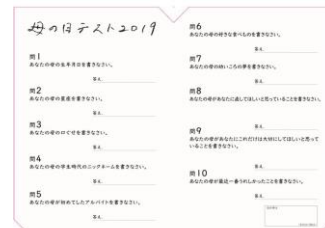 母の日テスト2019
問1
あなたの母の生年月日を書きなさい。
答え.
問2
あなたの母の星座を書きなさい。
答え.
問3
あなたの母の口ぐせを書きなさい。
答え.
問4
あなたの母の学生時代のニックネームを書きなさい。
答え.
問5
あなたの母が初めてしたアルバイトを書きなさい。
答え.
問6
あなたの母の好きな食べものを書きなさい。
答え.
問7
あなたの母の幼いころの夢を書きなさい。
答え.
問8
あなたの母があなたに直してほしいと思っていることを書きなさい。
答え.
問9
あなたの母があなたにこれだけは大切にしてほしいと思って
いることを書きなさい。
答え.
問10
あなたの母が最近一番うれしかったことを書きなさい。
答え.